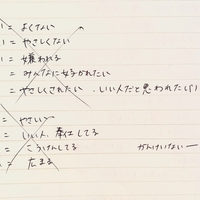 い = よくない
い = やさしくない
い = 嫌われる
= みんなに好かれたい
= やさしくされたい . いい人だと思われたい
= やさしい
= いい人、奉仕してる
= こうけんしてる かんけいない
= 広まる